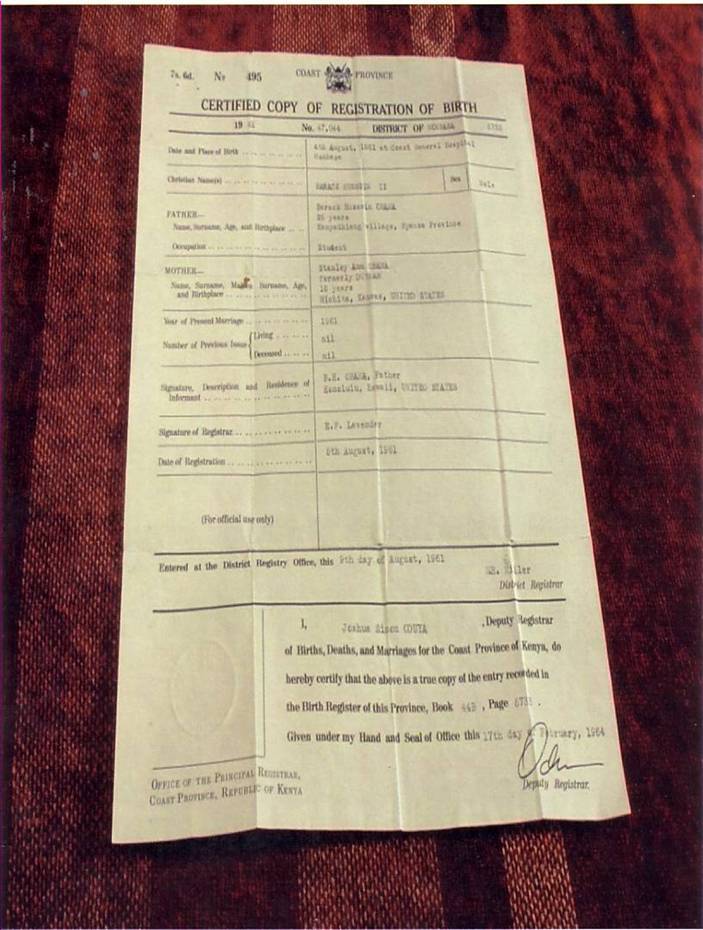 7s. 6d. No 495 COAST PROVINCE
CERTIFIED COPY OF REGISTRATION OF BIRTH
19 61 No. 47,044 DISTRICT OF MOMBASA
Date and Place of Birth 4th August, 1961 at Coast General Hospital
Mombasa
Christian Name(s) BARACK HUSSEIN II Sex Male
FATHER— Barack Hussein OBAMA
Name, Surname, Age, and Birthplace 25 years
village, Nyanza Province
Occupation Student
MOTHER— Stanley Ann OBAMA
formerly DUNHAM
Name, Surname, Maiden Surname, Age, 18 years
and Birthplace Wichita, Kansas, UNITED STATES
Year of Present Marriage 1961
Number of Previous Issue { Living nil
Deceased nil
Signature, Description and Residence of B.H. OBAMA, Father
Informant Honolulu, Hawaii, UNITED STATES
Signature of Registrar E.F. Lavender
Date of Registration 5th August, 1961
(For official use only)
Entered at the District Registry Office, this 9th day of August, 1961
Miller
District Registrar
I, Joshua Simon ODUYA, Deputy Registrar
of Births, Deaths, and Marriages for the Coast Province of Kenya, do
hereby certify that the above is a true copy of the entry recorded in
the Birth Register of this Province, Book 44B, Page
Given under my Hand and Seal of Office this 17th day of February, 1964
Deputy Registrar.
OFFICE OF THE PRINCIPAL REGISTRAR,
COAST PROVINCE, REPUBLIC OF KENYA